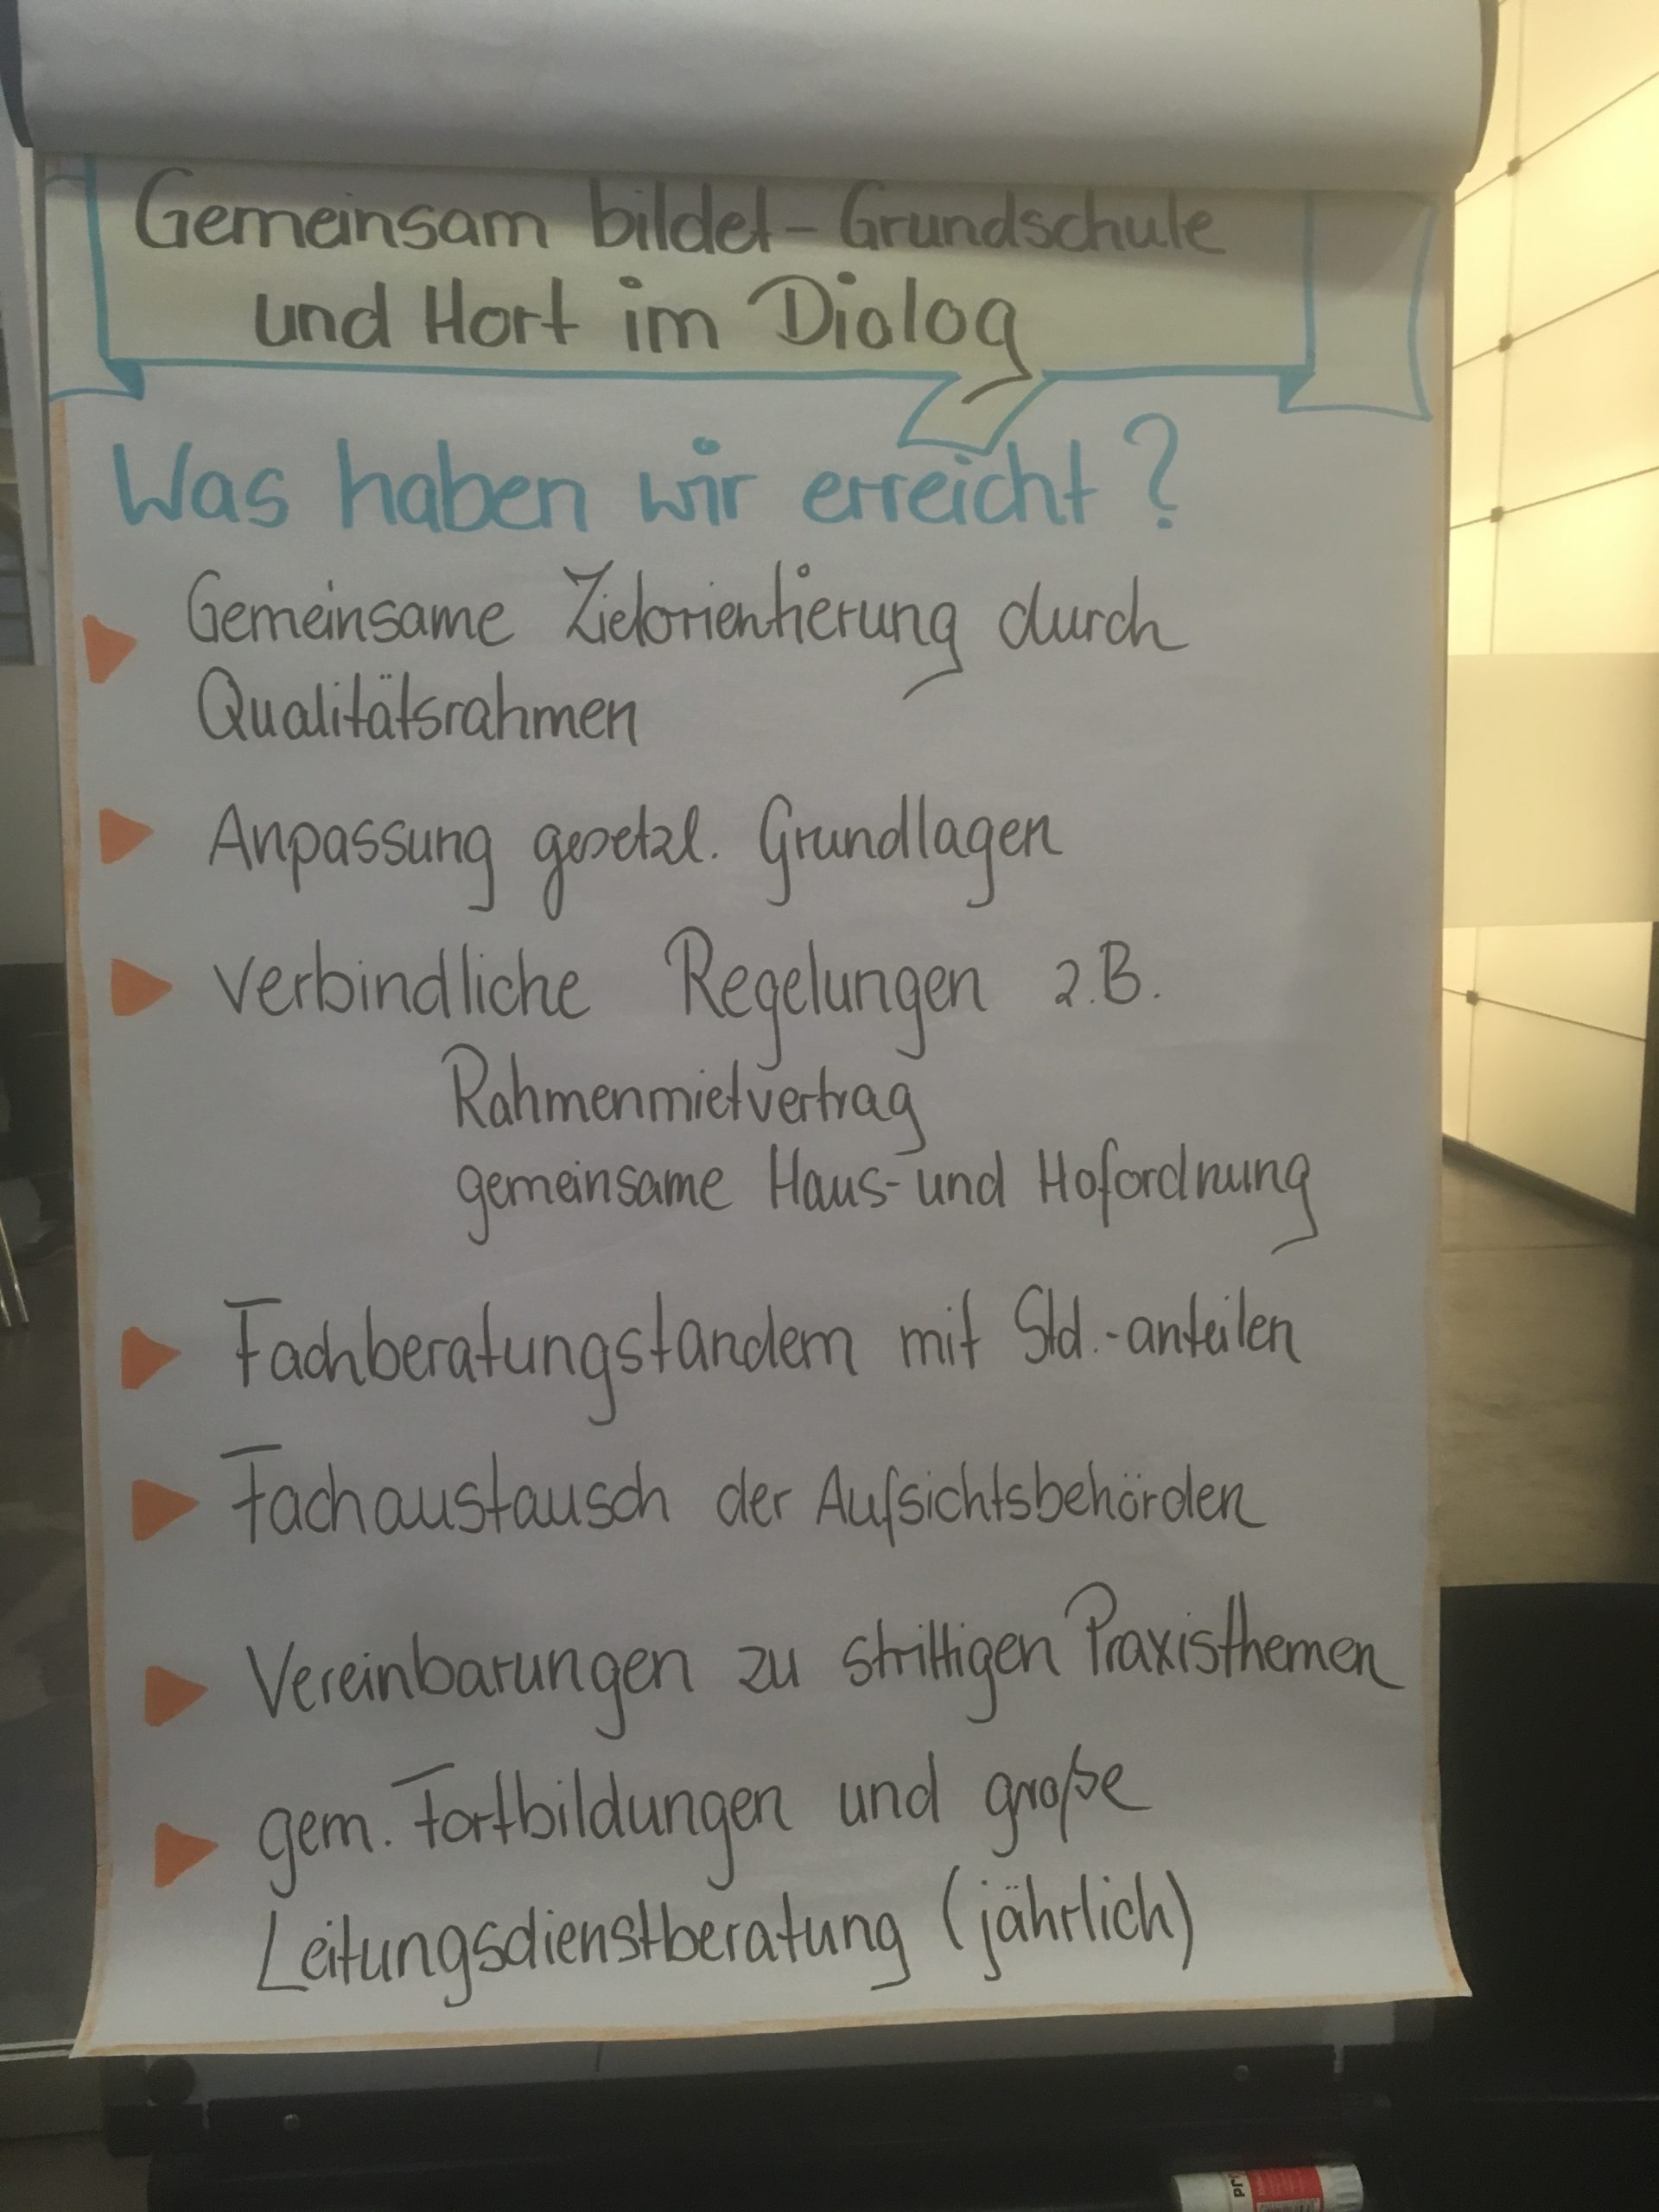 Gemeinsam bildet - Grundschule
und Hort im Dialog
Was haben wir erreicht?
Gemeinsame Zielorientierung durch
Qualitätsrahmen
Anpassung gesetzl. Grundlagen
verbindliche Regelungen z.B.
Rahmenmietvertrag
gemeinsame Haus- und Hofordnung
Fachberatungstandem mit Std.-anteilen
Fachaustausch der Aufsichtsbehörden
Vereinbarungen zu strittigen Praxisthemen
gem. Fortbildungen und große
Leitungsdienstberatung (jährlich)